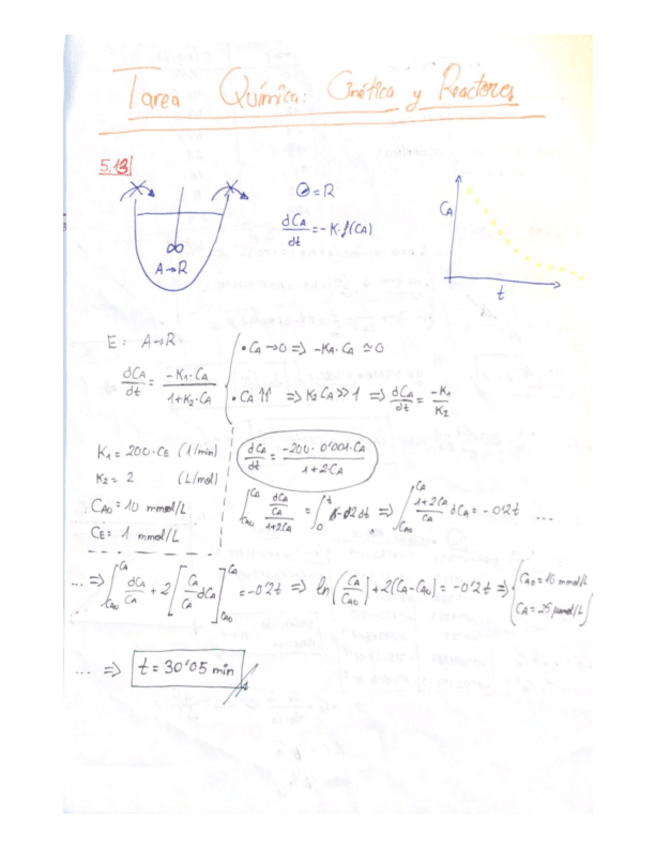 Tarea Química: Cinética y Reactores
5.13
A→R
⊘=R
dCA/dt = -K·f(CA)
CA
t
E: A→R
dCA/dt = -K1·CA / 1+K2·CA
• CA→0 ⇒ -KA·CA ≃ 0
• CA ↑↑ ⇒ K2 CA >> 1 ⇒ dCA/dt = -K1/K2
K1 = 200·CE (1/min)
K2 = 2 (L/mol)
CA0 = 10 mmol/L
CE = 1 mmol/L
dCA/dt = -200·0'001·CA / 1+2·CA
∫CA0^CA dCA / (CA/1+2CA) = ∫0^t -0'2 dt ⇒ ∫CA0^CA 1+2CA/CA dCA = -0'2t ...
... ⇒ ∫CA0^CA dCA/CA + 2[∫ CA/CA dCA]CA0^CA = -0'2t ⇒ ln(CA/CA0) + 2(CA-CA0) = -0'2t ⇒ {CA0 = 10 mmol/L
CA = 25 μmol/L}
... ⇒ t = 30'05 min